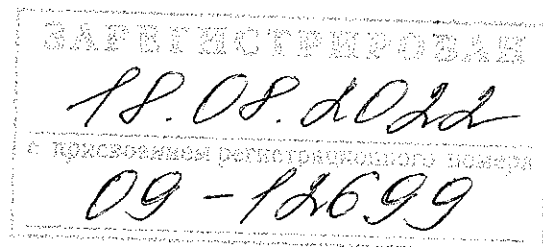 ЗАРЕГИСТРИРОВАН
18.08.2022
с присвоением регистрационного номера
09-12699